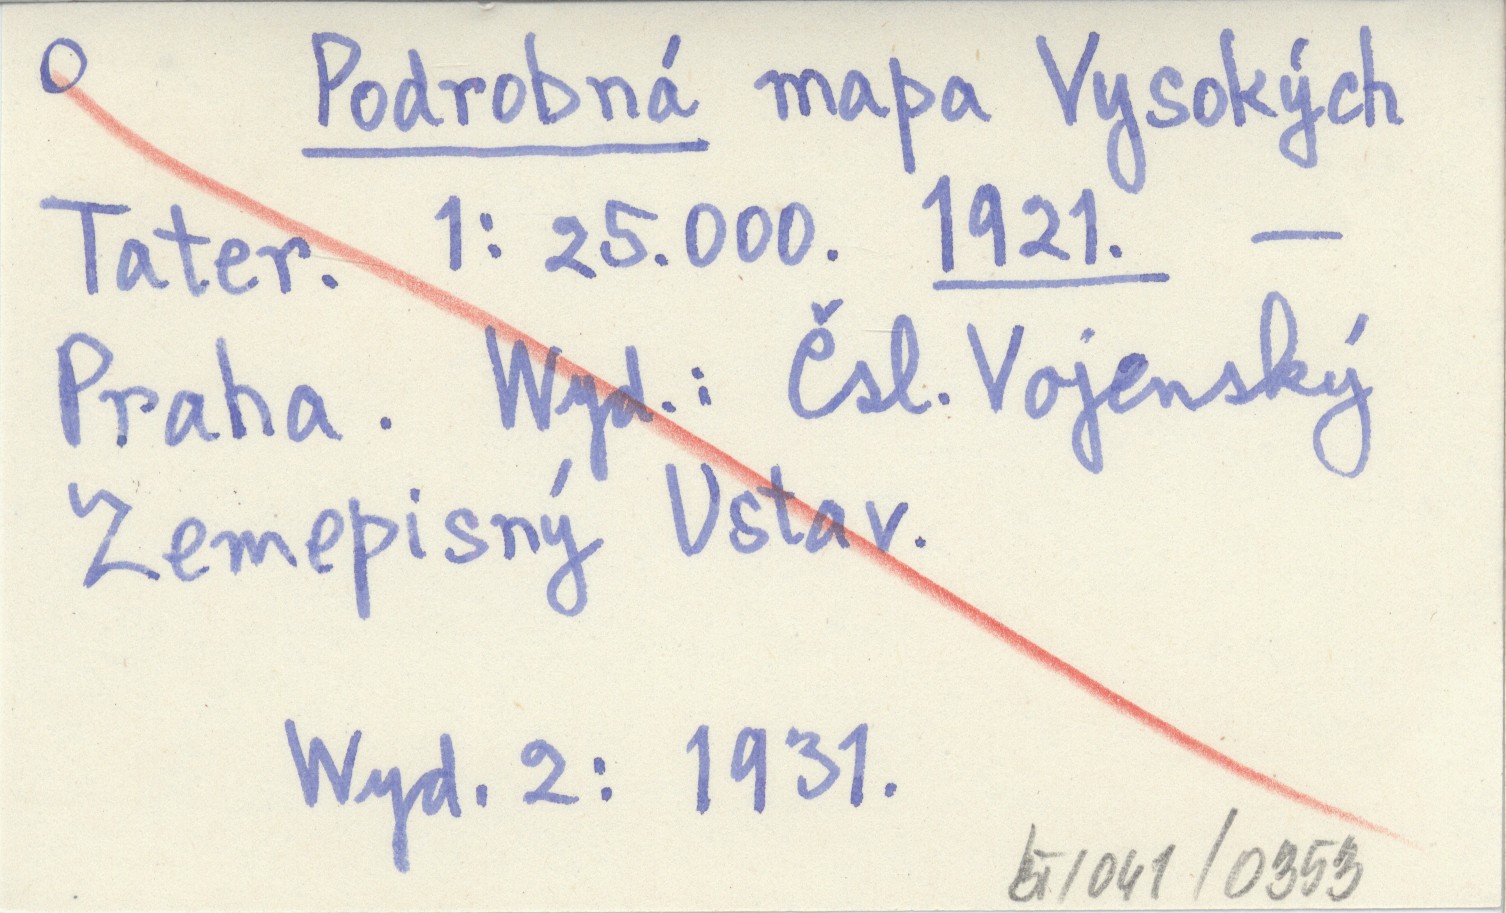 O Podrobná mapa Vysokých
Tater. 1: 25.000. 1921. —
Praha. Wyd.: Čsl. Vojenský
Zemepisný Ustav.
Wyd. 2: 1931.
/041/0353